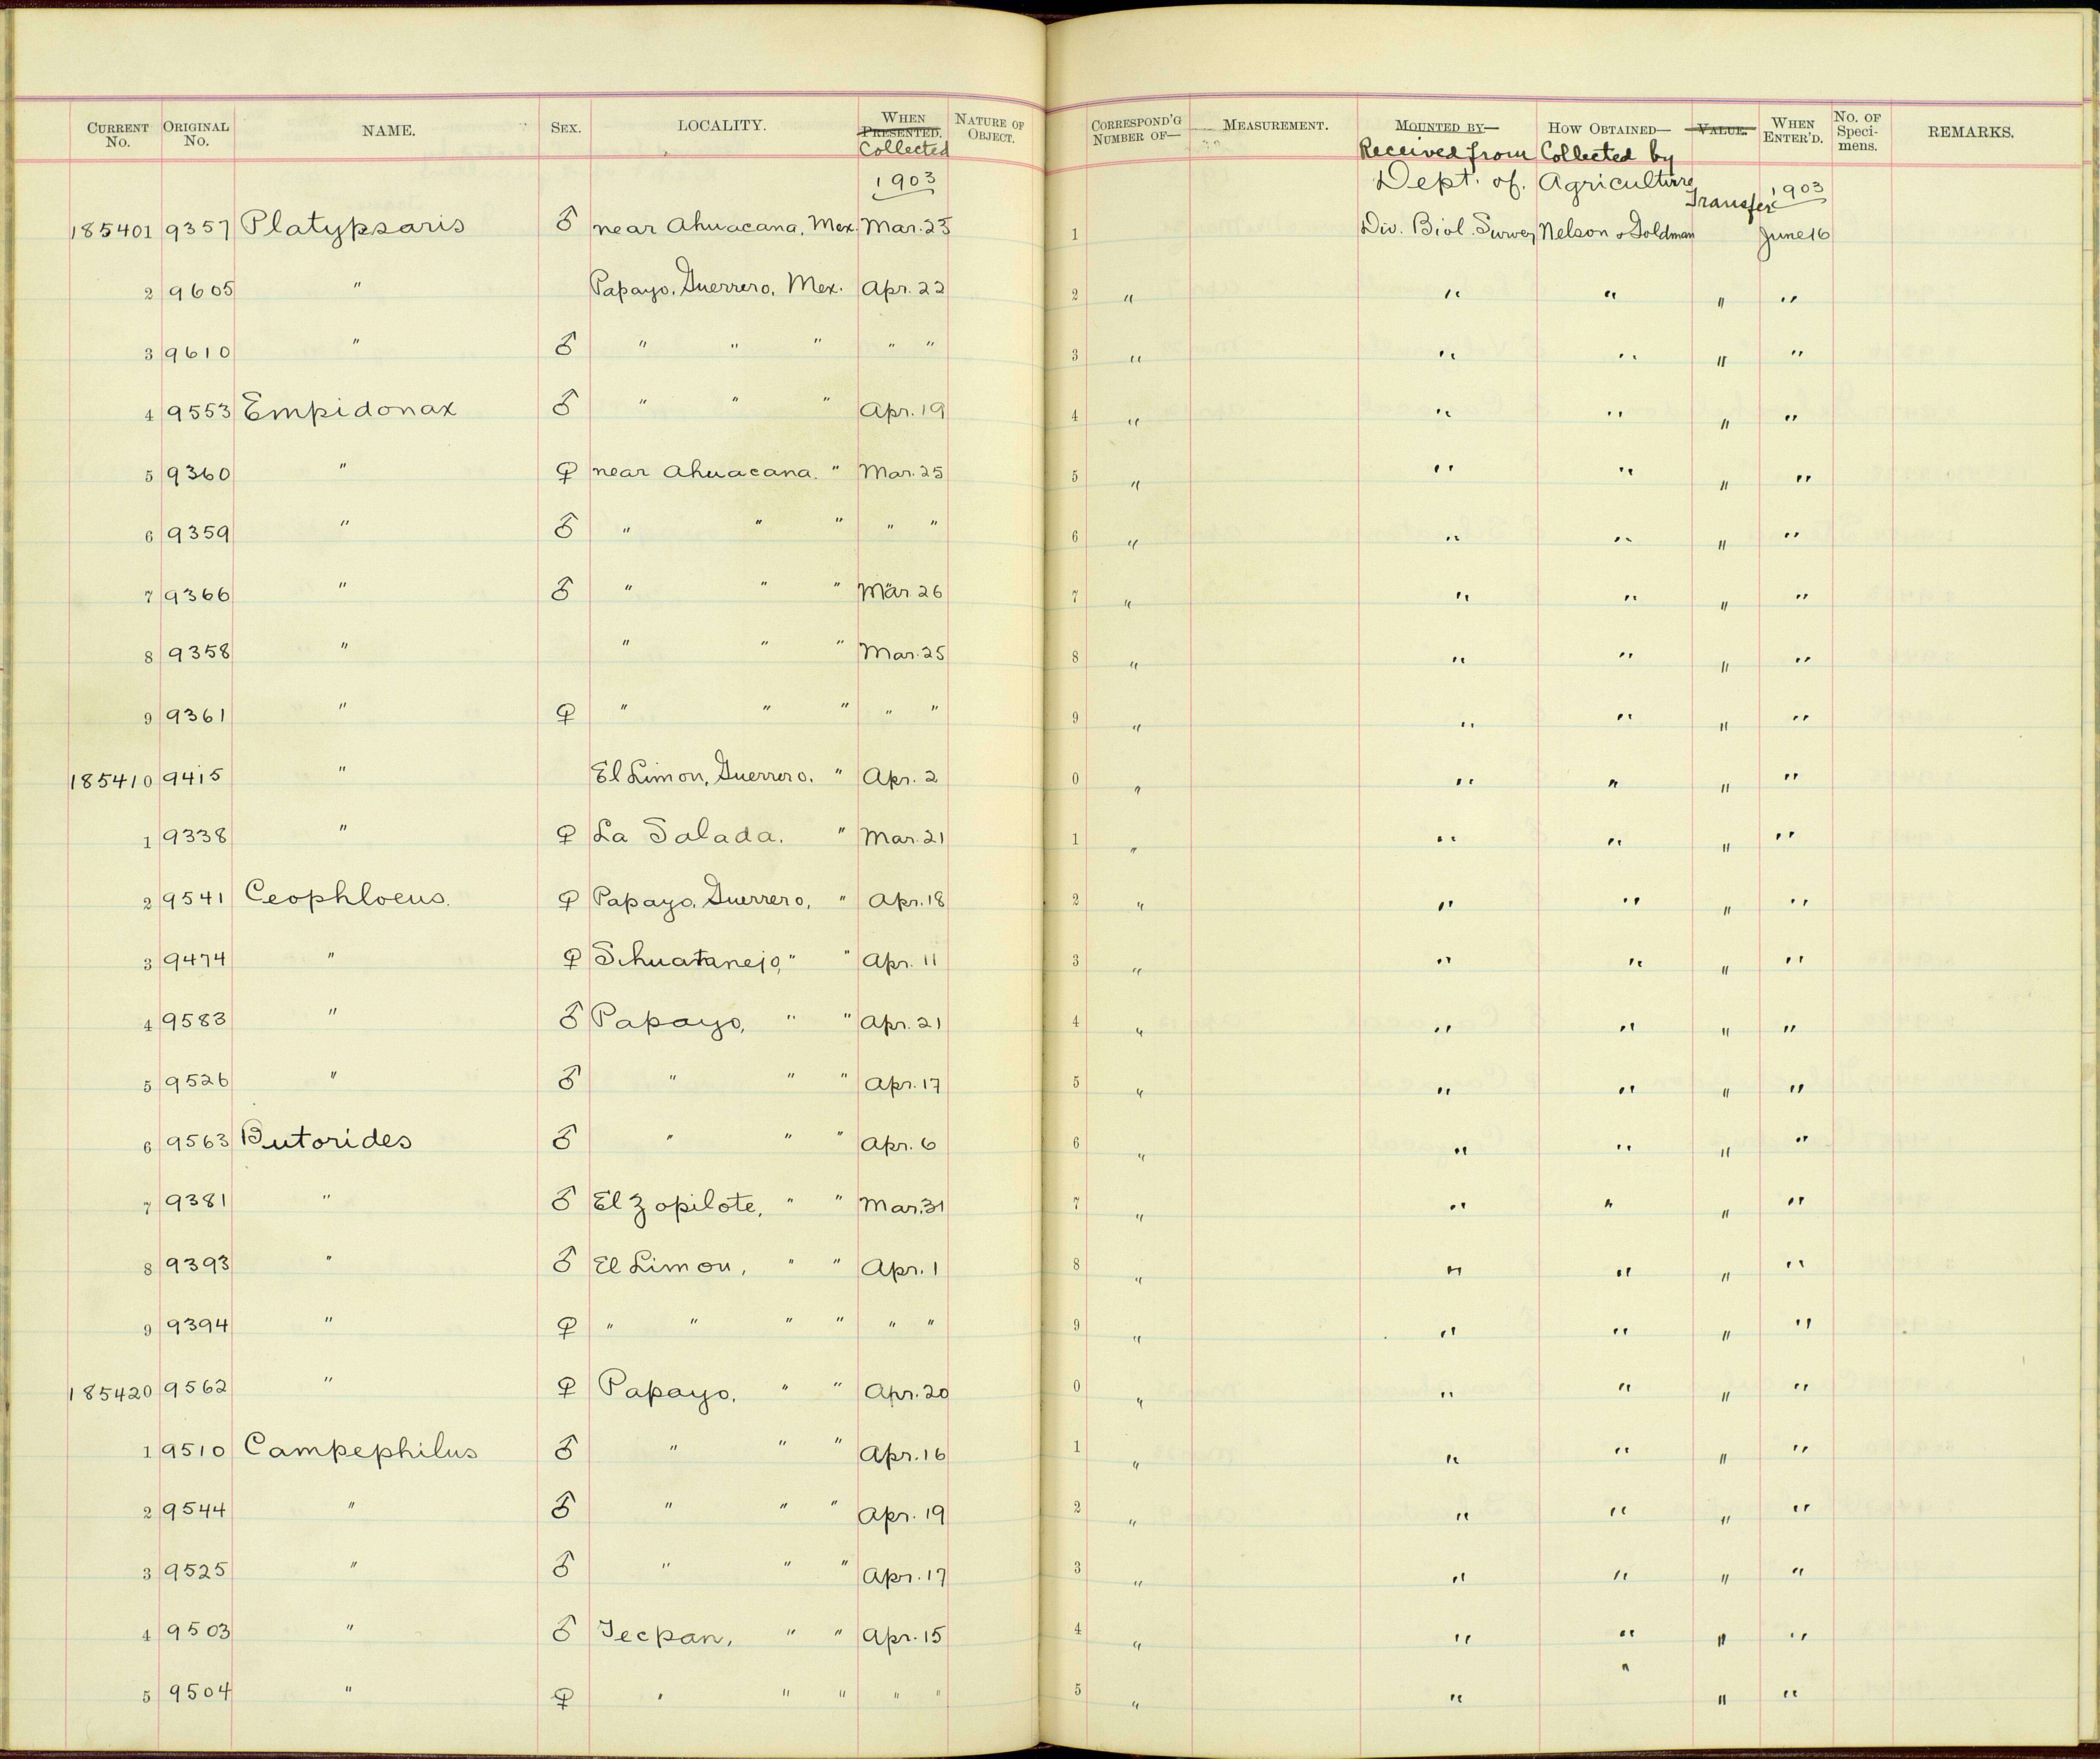 CURRENT No. ORIGINAL No. NAME. SEX. LOCALITY. WHEN PRESENTED. Collected NATURE OF OBJECT. CORRESPOND'G NUMBER OF— MEASUREMENT. MOUNTED BY— Received from HOW OBTAINED— Collected by VALUE. WHEN ENTER'D. No. OF Speci- mens. REMARKS.
1903 Dept. of. Agriculture Transfer 1903
185401 9357 Platypsaris ♂ near Ahuacana, Mex. Mar. 25 1 Div. Biol. Survey Nelson & Goldman June 16
2 9605 " Papayo, Guerrero, Mex. Apr. 22 2 " " " " "
3 9610 " ♂ " " " " " 3 " " " " "
4 9553 Empidonax ♂ " " " Apr. 19 4 " " " " "
5 9360 " ♀ near Ahuacana. " Mar. 25 5 " " " " "
6 9359 " ♂ " " " " " 6 " " " " "
7 9366 " ♂ " " " Mar. 26 7 " " " " "
8 9358 " " " " Mar. 25 8 " " " " "
9 9361 " ♀ " " " " " 9 " " " " "
185410 9415 " El Limon, Guerrero. " Apr. 2 0 " " " " "
1 9338 " ♀ La Salada. " Mar. 21 1 " " " " "
2 9541 Ceophloeus. ♀ Papayo, Guerrero, " Apr. 18 2 " " " " "
3 9474 " ♀ Sihuatanejo, " " Apr. 11 3 " " " " "
4 9583 " ♂ Papayo, " " Apr. 21 4 " " " " "
5 9526 " ♂ " " " Apr. 17 5 " " " " "
6 9563 Butorides ♂ " " " Apr. 6 6 " " " " "
7 9381 " ♂ El Zopilote, " " Mar. 31 7 " " " " "
8 9393 " ♂ El Limon, " " Apr. 1 8 " " " " "
9 9394 " ♀ " " " " " " 9 " " " " "
185420 9562 " ♀ Papayo, " " Apr. 20 0 " " " " "
1 9510 Campephilus ♂ " " " Apr. 16 1 " " " " "
2 9544 " ♂ " " " Apr. 19 2 " " " " "
3 9525 " ♂ " " " Apr. 17 3 " " " " "
4 9503 " ♂ Tecpan, " " Apr. 15 4 " " " " "
5 9504 " ♀ " " " " " 5 " " " " "